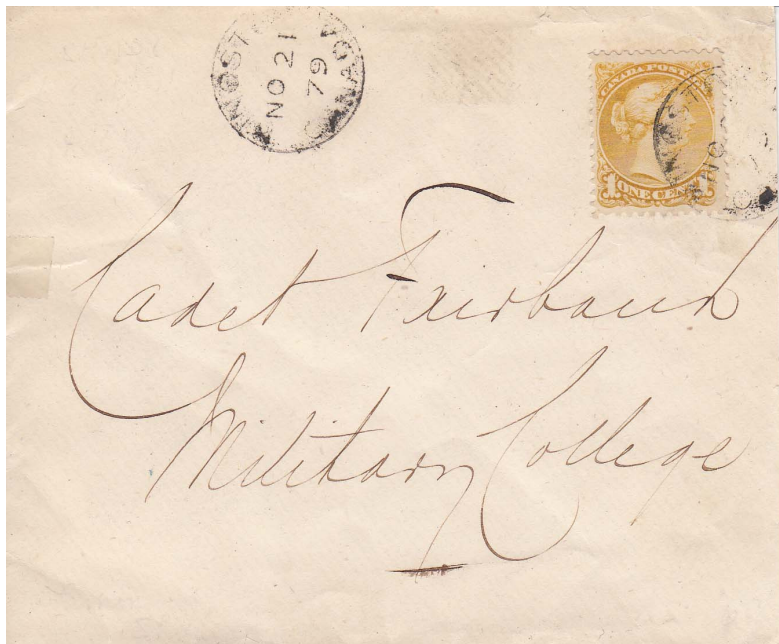 NO 21
79
CANADA
CANADA POSTAGE
1 ONE CENT
Cadet Fairbank
Military College